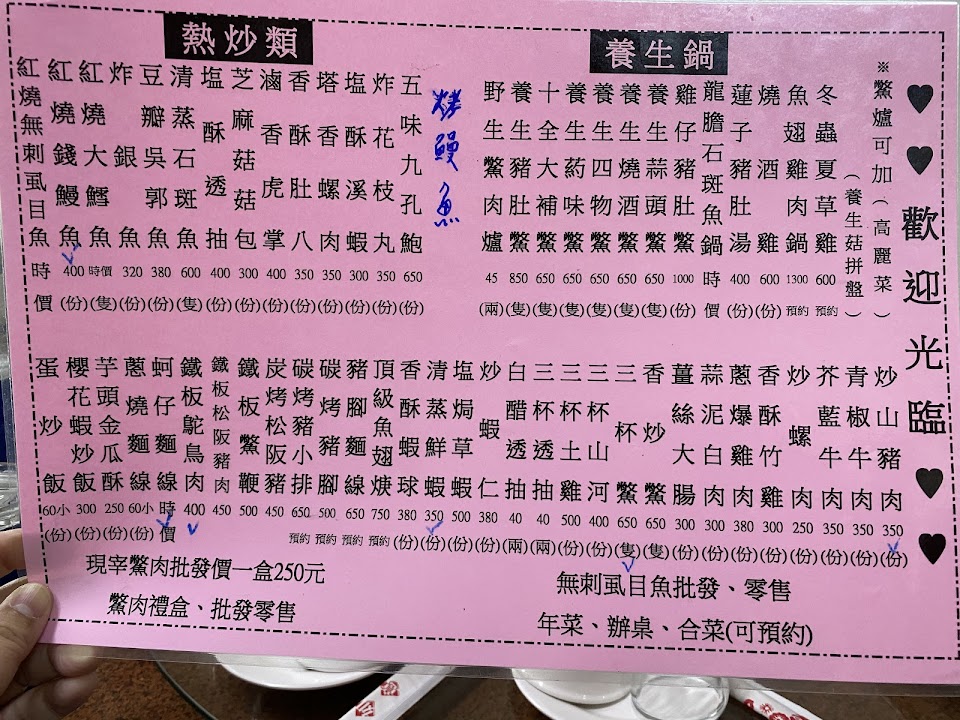 ♥♥歡迎光臨♥♥
※鱉爐可加(高麗菜)
(養生菇拼盤)
養生鍋
冬蟲夏草雞 600 預約
魚翅雞肉鍋 1300 預約
燒酒雞 600 (份)
蓮子豬肚湯 400 (份)
龍膽石斑魚鍋 時價
雞仔豬肚鱉 1000 (份)
養生蒜頭鱉 650 (隻)
養生燒酒鱉 650 (隻)
養生四物鱉 650 (隻)
養生葯味鱉 650 (隻)
十全大補鱉 650 (隻)
養生豬肚鱉 850 (隻)
野生鱉肉爐 45 (兩)
烤鰻魚
熱炒類
五味九孔鮑 650 (份)
炸花枝丸 350 (份)
塩酥溪蝦 300 (份)
塔香螺肉 350 (份)
香酥肚八 350 (份)
滷香虎掌 400 (份)
芝麻菇菇包 300 (份)
塩酥透抽 400 (份)
清蒸石斑魚 600 (隻)
豆瓣吳郭魚 380 (份)
炸銀魚 320 (份)
紅燒大鱈魚 時價 (隻)
紅燒錢鰻魚 400 (份)
紅燒無刺虱目魚 時價
炒山豬肉 350 (份)
青椒牛肉 350 (份)
芥藍牛肉 350 (份)
炒螺肉 250 (份)
香酥竹雞 300 (份)
蔥爆雞肉 380 (份)
蒜泥白肉 300 (份)
薑絲大腸 300 (份)
香炒鱉 650 (隻)
三杯鱉 650 (隻)
三杯山河 400 (份)
三杯土雞 500 (份)
三杯透抽 40 (兩)
白醋透抽 40 (兩)
炒蝦仁 380 (份)
塩焗草蝦 500 (份)
清蒸鮮蝦 350 (份)
香酥蝦球 380 (份)
頂級魚翅焿 750 預約
豬腳麵線 750 預約
碳烤豬腳 500 預約
碳烤豬小排 650 預約
炭烤松阪豬 450
鐵板鱉鞭 500
鐵板松阪豬肉 450
鐵板鴕鳥肉 400
蚵仔麵線 時價
蔥燒麵線 60小 (份)
芋頭金瓜酥 250 (份)
櫻花蝦炒飯 300 (份)
蛋炒飯 60小 (份)
無刺虱目魚批發、零售
年菜、辦桌、合菜(可預約)
現宰鱉肉批發價一盒250元
鱉肉禮盒、批發零售